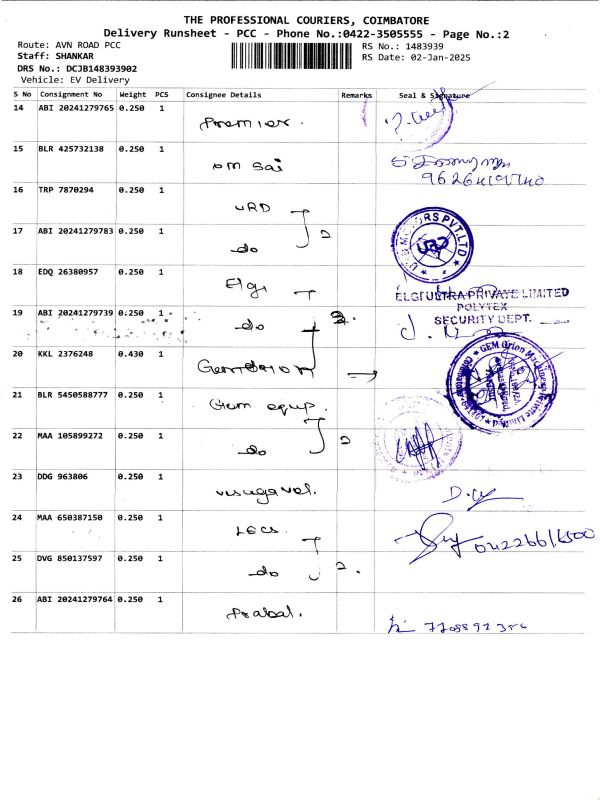 THE PROFESSIONAL COURIERS, COIMBATORE
Delivery Runsheet - PCC - Phone No.:0422-3505555 - Page No.:2
Route: AVN ROAD PCC
RS No.: 1483939
Staff: SHANKAR
RS Date: 02-Jan-2025
DRS No.: DCJB148393902
Vehicle: EV Delivery
S No Consignment No Weight PCS Consignee Details Remarks Seal & Signature
14 ABI 20241279765 0.250 1
Premier.
15 BLR 425732138 0.250 1
om sai
16 TRP 7870294 0.250 1
URD
17 ABI 20241279783 0.250 1
do 2
18 EDQ 26380957 0.250 1
Elgi
ELGI ULTRA PRIVATE LIMITED
POLYTEX
SECURITY DEPT.
19 ABI 20241279739 0.250 1
do 2.
20 KKL 2376248 0.430 1
Gem orion
21 BLR 5450588777 0.250 1
Gem equp.
22 MAA 105899272 0.250 1
do 2
23 DDG 963806 0.250 1
24 MAA 650387150 0.250 1
LECS.
25 DVG 850137597 0.250 1
do 2.
26 ABI 20241279764 0.250 1
Prabal.